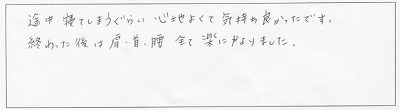 途中 寝てしまうぐらい 心地よくて 気持ち良かったです。
終わった後は 肩・首・腰 全て 楽になりました。